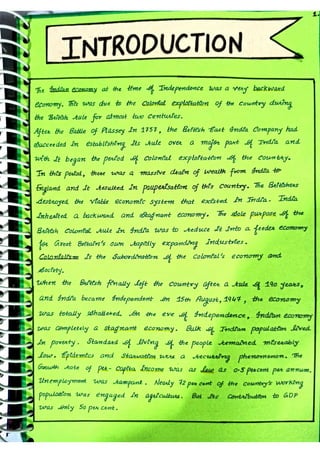 INTRODUCTION
The Indian economy at the time of Independence was a very backward
economy. This was due to the Colonial exploitation of the country during
the British rule for almost two centuries.
After the Battle of Plassey in 1757, the British East India Company had
succeeded in establishing its rule over a major part of India and
with it began the period of colonial exploitation of the country.
In this period, there was a massive drain of wealth from India to
England and it resulted in pauperisation of this country. The Britishers
destroyed the viable economic system that existed in India. India
inherited a backward and stagnant economy. The sole purpose of the
British Colonial rule in India was to reduce it into a feeder economy
for Great Britain's own rapidly expanding industries.
Colonialism is the Subordination of the colonial's economy and
society.
When the British finally left the country after a rule of 190 years,
and India became independent on 15th August, 1947, the economy
was totally shattered. On the eve of Independence, Indian economy
was completely a stagnant economy. Bulk of Indian population lived
in poverty. Standard of living of the people remained miserably
low. Epidemics and starvation were a recurring phenomenon. The
Growth rate of per-Capita Income was as low as 0.5 percent per annum.
Unemployment was rampant. Nearly 72 per cent of the country's working
population was engaged in agriculture. But its contribution to GDP
was only 50 per cent.